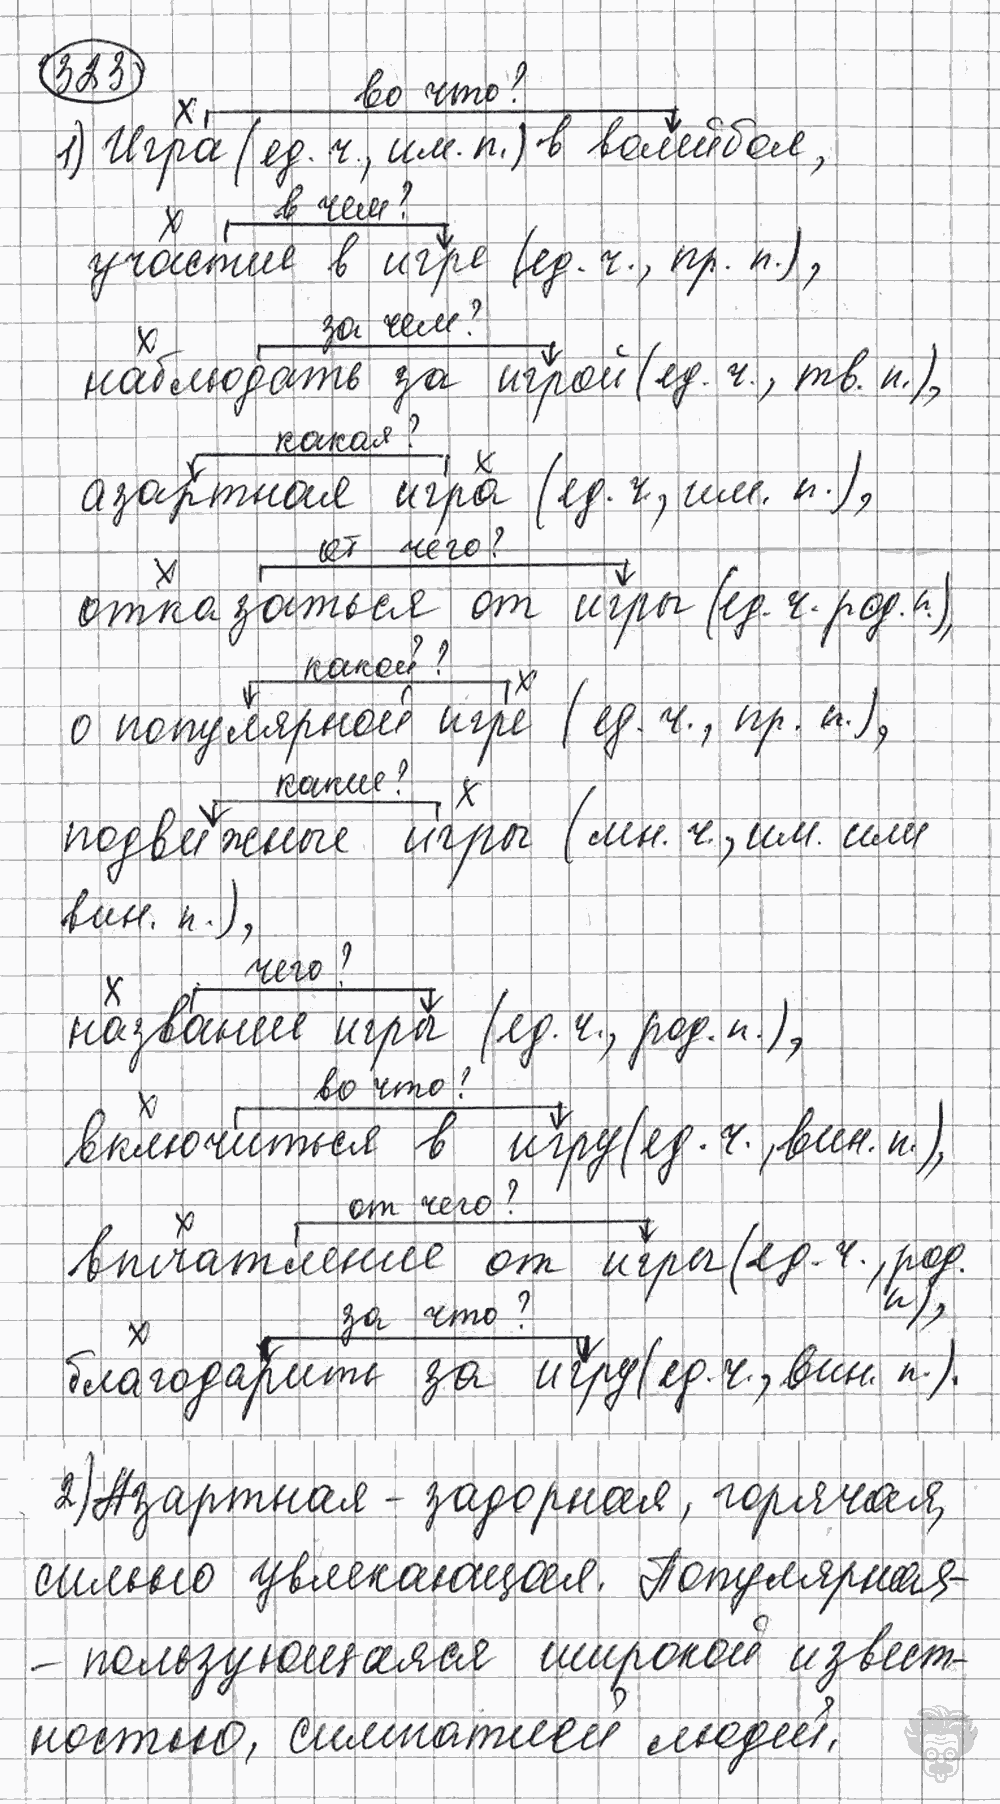 323
во что?
х
1) Игра (ед. ч., им. п.) в волейбол,
в чем?
х
участие в игре (ед. ч., пр. п.),
за чем?
х
наблюдать за игрой (ед. ч., тв. п.),
какая?
х
азартная игра (ед. ч., им. п.),
от чего?
х
отказаться от игры (ед. ч. род. п.),
какой?
х
о популярной игре (ед. ч., пр. п.),
какие?
х
подвижные игры (мн. ч., им. или
вин. п.),
чего?
х
название игры (ед. ч., род. п.),
во что?
х
включиться в игру (ед. ч., вин. п.),
от чего?
х
впечатление от игры (ед. ч., род.
п),
за что?
х
благодарить за игру (ед. ч., вин. п.).
2) Азартная – задорная, горячая,
сильно увлекающая. Популярная –
– пользующаяся широкой извест-
ностью, симпатией людей.